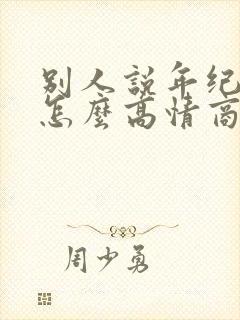 別人說年纪
怎麼高情商
周少勇